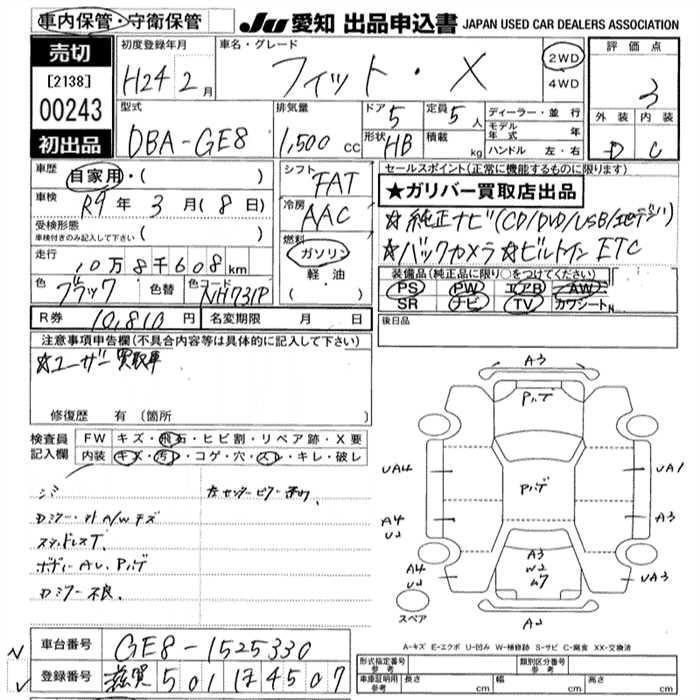 車内保管・守衛保管
JU 愛知 出品申込書 JAPAN USED CAR DEALERS ASSOCIATION
売切
[2138]
00243
初出品
初度登録年月
H24 2月
車名・グレード
フィット・X
2WD
4WD
評価点
3
外装 内装
D C
型式
DBA-GE8
排気量
1,500 cc
ドア 5
定員 5人
形状 HB
積載 kg
ディーラー・並行
モデル年式 年
ハンドル 左・右
車歴
自家用・( )
車検
R9年 3月(8日)
受検形態
車検付きのみ記入して下さい ( )
走行
10万8千608km
色 ブラック 色替 色コード NH731P
シフト
FAT
冷房
AAC
燃料
ガソリン
軽油
( ・ )
セールスポイント(正常に機能するものに限ります)
★ガリバー買取店出品
☆純正ナビ(CD/DVD/USB/地デジ)
☆バックカメラ ☆ビルトイン ETC
装備品(純正品に限り○をつけてください)
PS PW エアB AW
SR ナビ TV カワシートN
R券 10,810円 名変期限 月 日
後日品
注意事項申告欄(不具合内容等は具体的に記入して下さい)
☆ユーザー買取車
修復歴 有(箇所
検査員 FW キズ・飛石・ヒビ割・リペア跡・X要
記入欄 内装 キズ・汚レ・コゲ・穴・スレ・キレ・破レ
シミ
Dミラー・ガハ/Wキズ
スタッドレスT.
ボディーAU.Pハゲ
Dミラー不良.
A3
Pハゲ
UA4
UA1
Pハゲ
A4
U2
A3
A3
W2
ムラ
A4
U2
UA3
スペア
A2
A-キズ E-エクボ U-凹み W-補修跡 S-サビ C-腐食 XX-交換済
車台番号 GE8-1525330
登録番号 滋賀 501 ほ 4507
形式指定番号 参考
類別区分番号 参考
車庫証明用 参考 長さ cm 幅 cm 高さ cm